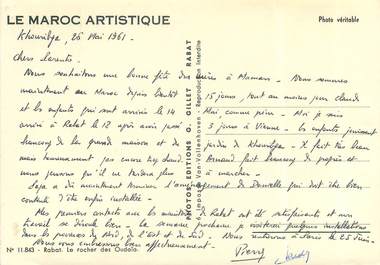 LE MAROC ARTISTIQUE
Photo véritable
Khouribga, 26 Mai 1961.
Chers parents.
Nous souhaitons une bonne fête des mères à Maman. Nous sommes
maintenant au Maroc depuis 15 jours, tout au moins pour Claude
et les enfants qui sont arrivés le 14 Mai, comme prévu. Moi je suis
arrivé à Rabat le 12 après avoir passé 3 jours à Vienne. Les enfants jouissent
beaucoup de la grande maison et du jardin de Khouribga. Il fait très beau
mais heureusement pas encore trop chaud. Arnaud fait beaucoup de progrès et
nous pensons qu'il ne tardera plus à marcher.
a dû maintenant terminer l'aménagement de Deauville qui doit être bien
content d'être enfin installée.
Mes premiers contacts avec les de Rabat ont été satisfaisants et mon
travail se déroule bien. La semaine prochaine je visiterai quelques installations
dans les provinces du Nord, de l'Est et du Sud. Nous rentrerons à Paris le 25 Juin.
Nous vous embrassons bien affectueusement.
Pierre
N° 11.843 - Rabat. Le rocher des Oudaïa
PHOTOS EDITIONS G. GILLET RABAT
6, Impasse Van-Vollenhoven - Reproduction Interdite